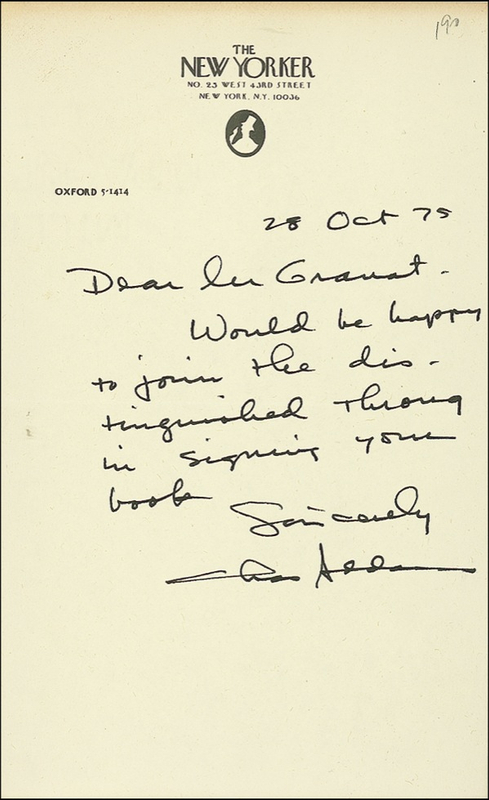 190
THE
NEW YORKER
NO. 25 WEST 43RD STREET
NEW YORK, N.Y. 10036
OXFORD 5-1414
28 Oct 75
Dear Mr Granat.
Would be happy
to join the dis-
tinguished throng
in signing your
book
Sincerely
Chas Addams